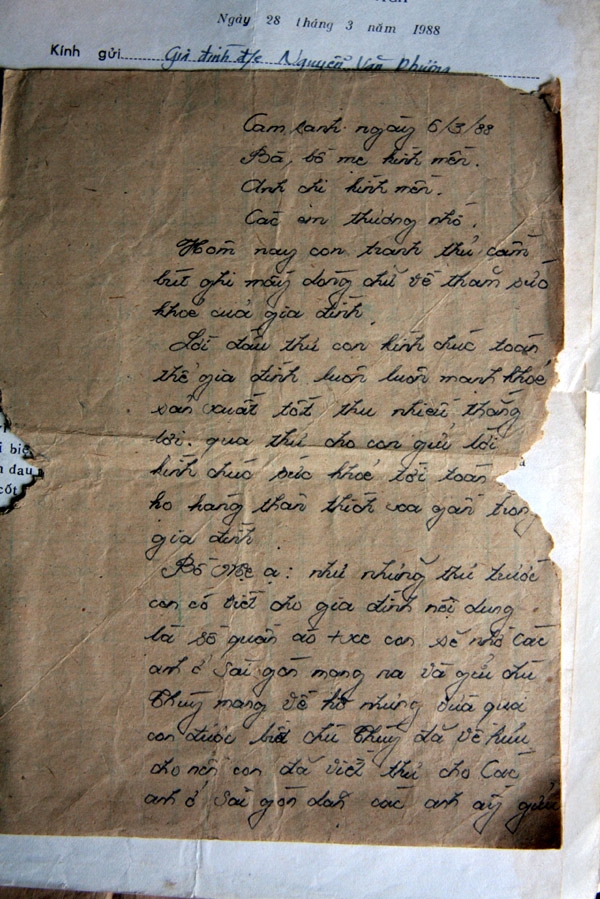 Ngày 28 tháng 3 năm 1988
Kính gửi: Gia đình đ/c Nguyễn Văn Phương
Cam Ranh ngày 6/3/88
Bà, bố mẹ kính mến.
Anh chị kính mến.
Các em thương nhớ.
Hôm nay con tranh thủ cầm
bút ghi mấy dòng chữ về thăm sức
khoẻ của gia đình
Lời đầu thư con kính chúc toàn
thể gia đình luôn luôn mạnh khoẻ
sản xuất tốt thu nhiều thắng
lợi. qua thư cho con gửi lời
kính chúc sức khoẻ tới toàn
họ hàng thân thích xa gần trong
gia đình
Bố Mẹ ạ: như những thư trước
con có viết cho gia đình nội dung
là số quần áo + xe con sẽ nhờ các
anh ở Sài gòn mang ra và gửi chú
Thuỷ mang về hộ nhưng vừa qua
con được biết chú Thuỷ đã về hưu
cho nên con đã viết thư cho Các
anh ở Sài gòn dặn các anh ấy gửi
i biệ
n dau
cốt